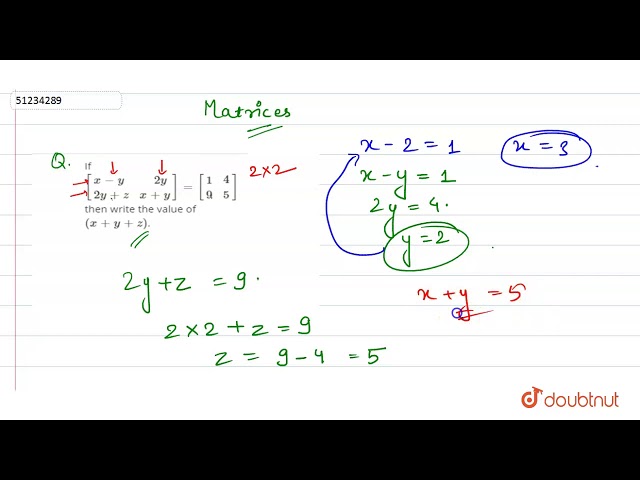 51234289
Matrices
Q.
If
[x − y 2y
2y + z x + y] = [1 4
9 5]
2×2
then write the value of
(x + y + z).
2y+z = 9.
2×2 + z = 9
z = 9 − 4 = 5
x − 2 = 1
x = 3
x − y = 1
2y = 4.
y = 2
x + y = 5
doubtnut